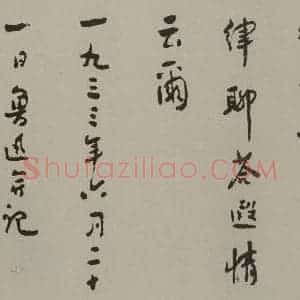 律聊答遐情
云爾
一九三三年六月二十
一日魯迅并記
ShufaZiliao.COM